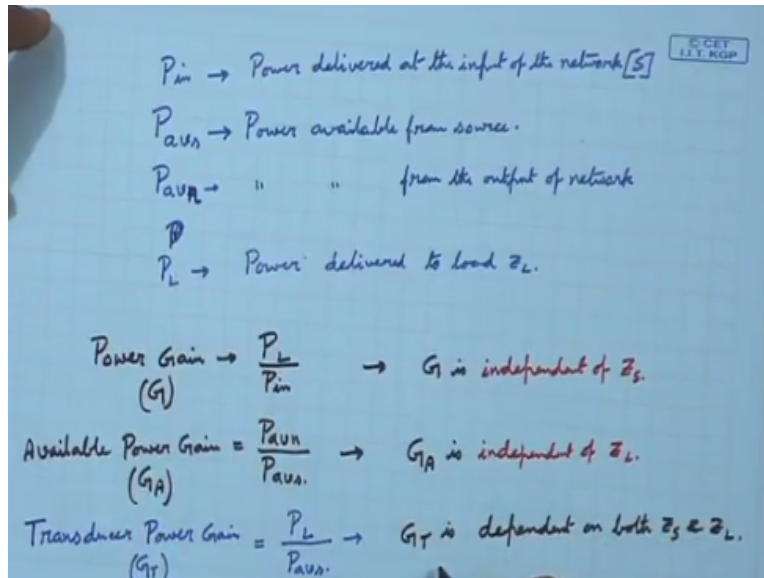 © CET
I.I.T. KGP
Pin → Power delivered at the input of the network [S]
Pavs → Power available from source.
Pavn → " " from the output of network
P
PL → Power delivered to load ZL.
Power Gain → PL/Pin → G is independent of Zs.
(G)
Available Power Gain = Pavn/Pavs. → GA is independent of ZL.
(GA)
Transducer Power Gain = PL/Pavs. → GT is dependent on both Zs & ZL.
(GT)